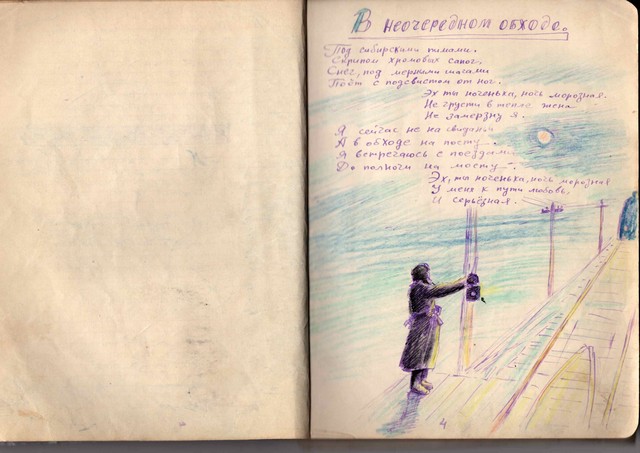 В неочередном обходе.
Под сибирскими пимами.
Скрипом хромовых сапог.
Снег, под мерными шагами
Поёт с подсвистом от ног.
Эх ты ноченька, ночь морозная.
Не грусти в тепле жена
Не замерзну я.
Я сейчас не на свиданьи
А в обходе на посту.
Я встречаюсь с поездами
До полночи на мосту.
Эх, ты ноченька, ночь морозная
У меня к пути любовь,
И серьёзная.
4